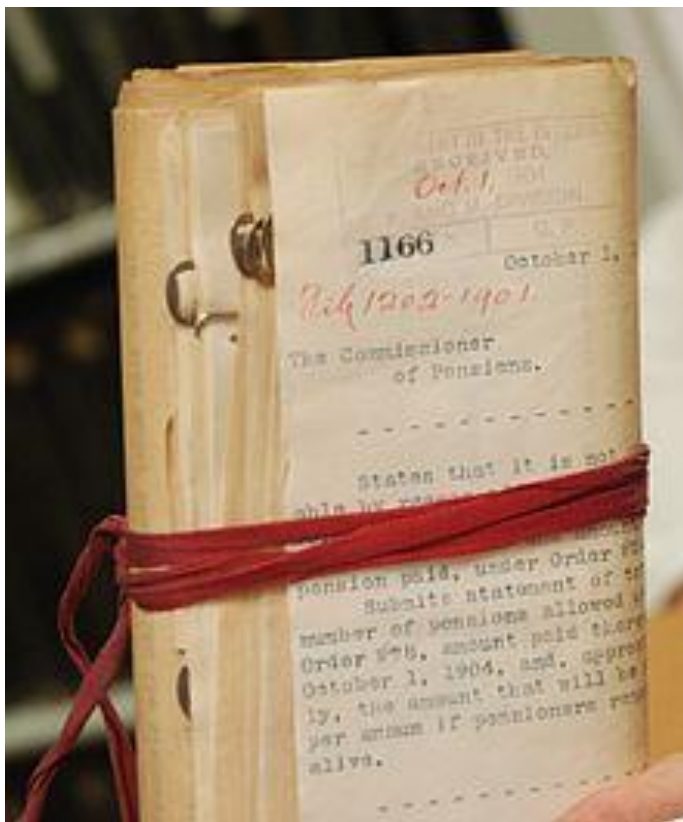 RECEIVED
Oct. 1, 1904
DIVISION
1166
October 1,
File 1202-1901.
The Commissioner
of Pensions.
- - - - - - - - - - - -
States that it is not
able by reason
pension paid, under Order
Submits statement of
number of pensions allowed
Order #78, amount paid
October 1, 1904, and,
ly, the amount that will be
per annum if pensioners
alive.
- - - - - - - - - - - -